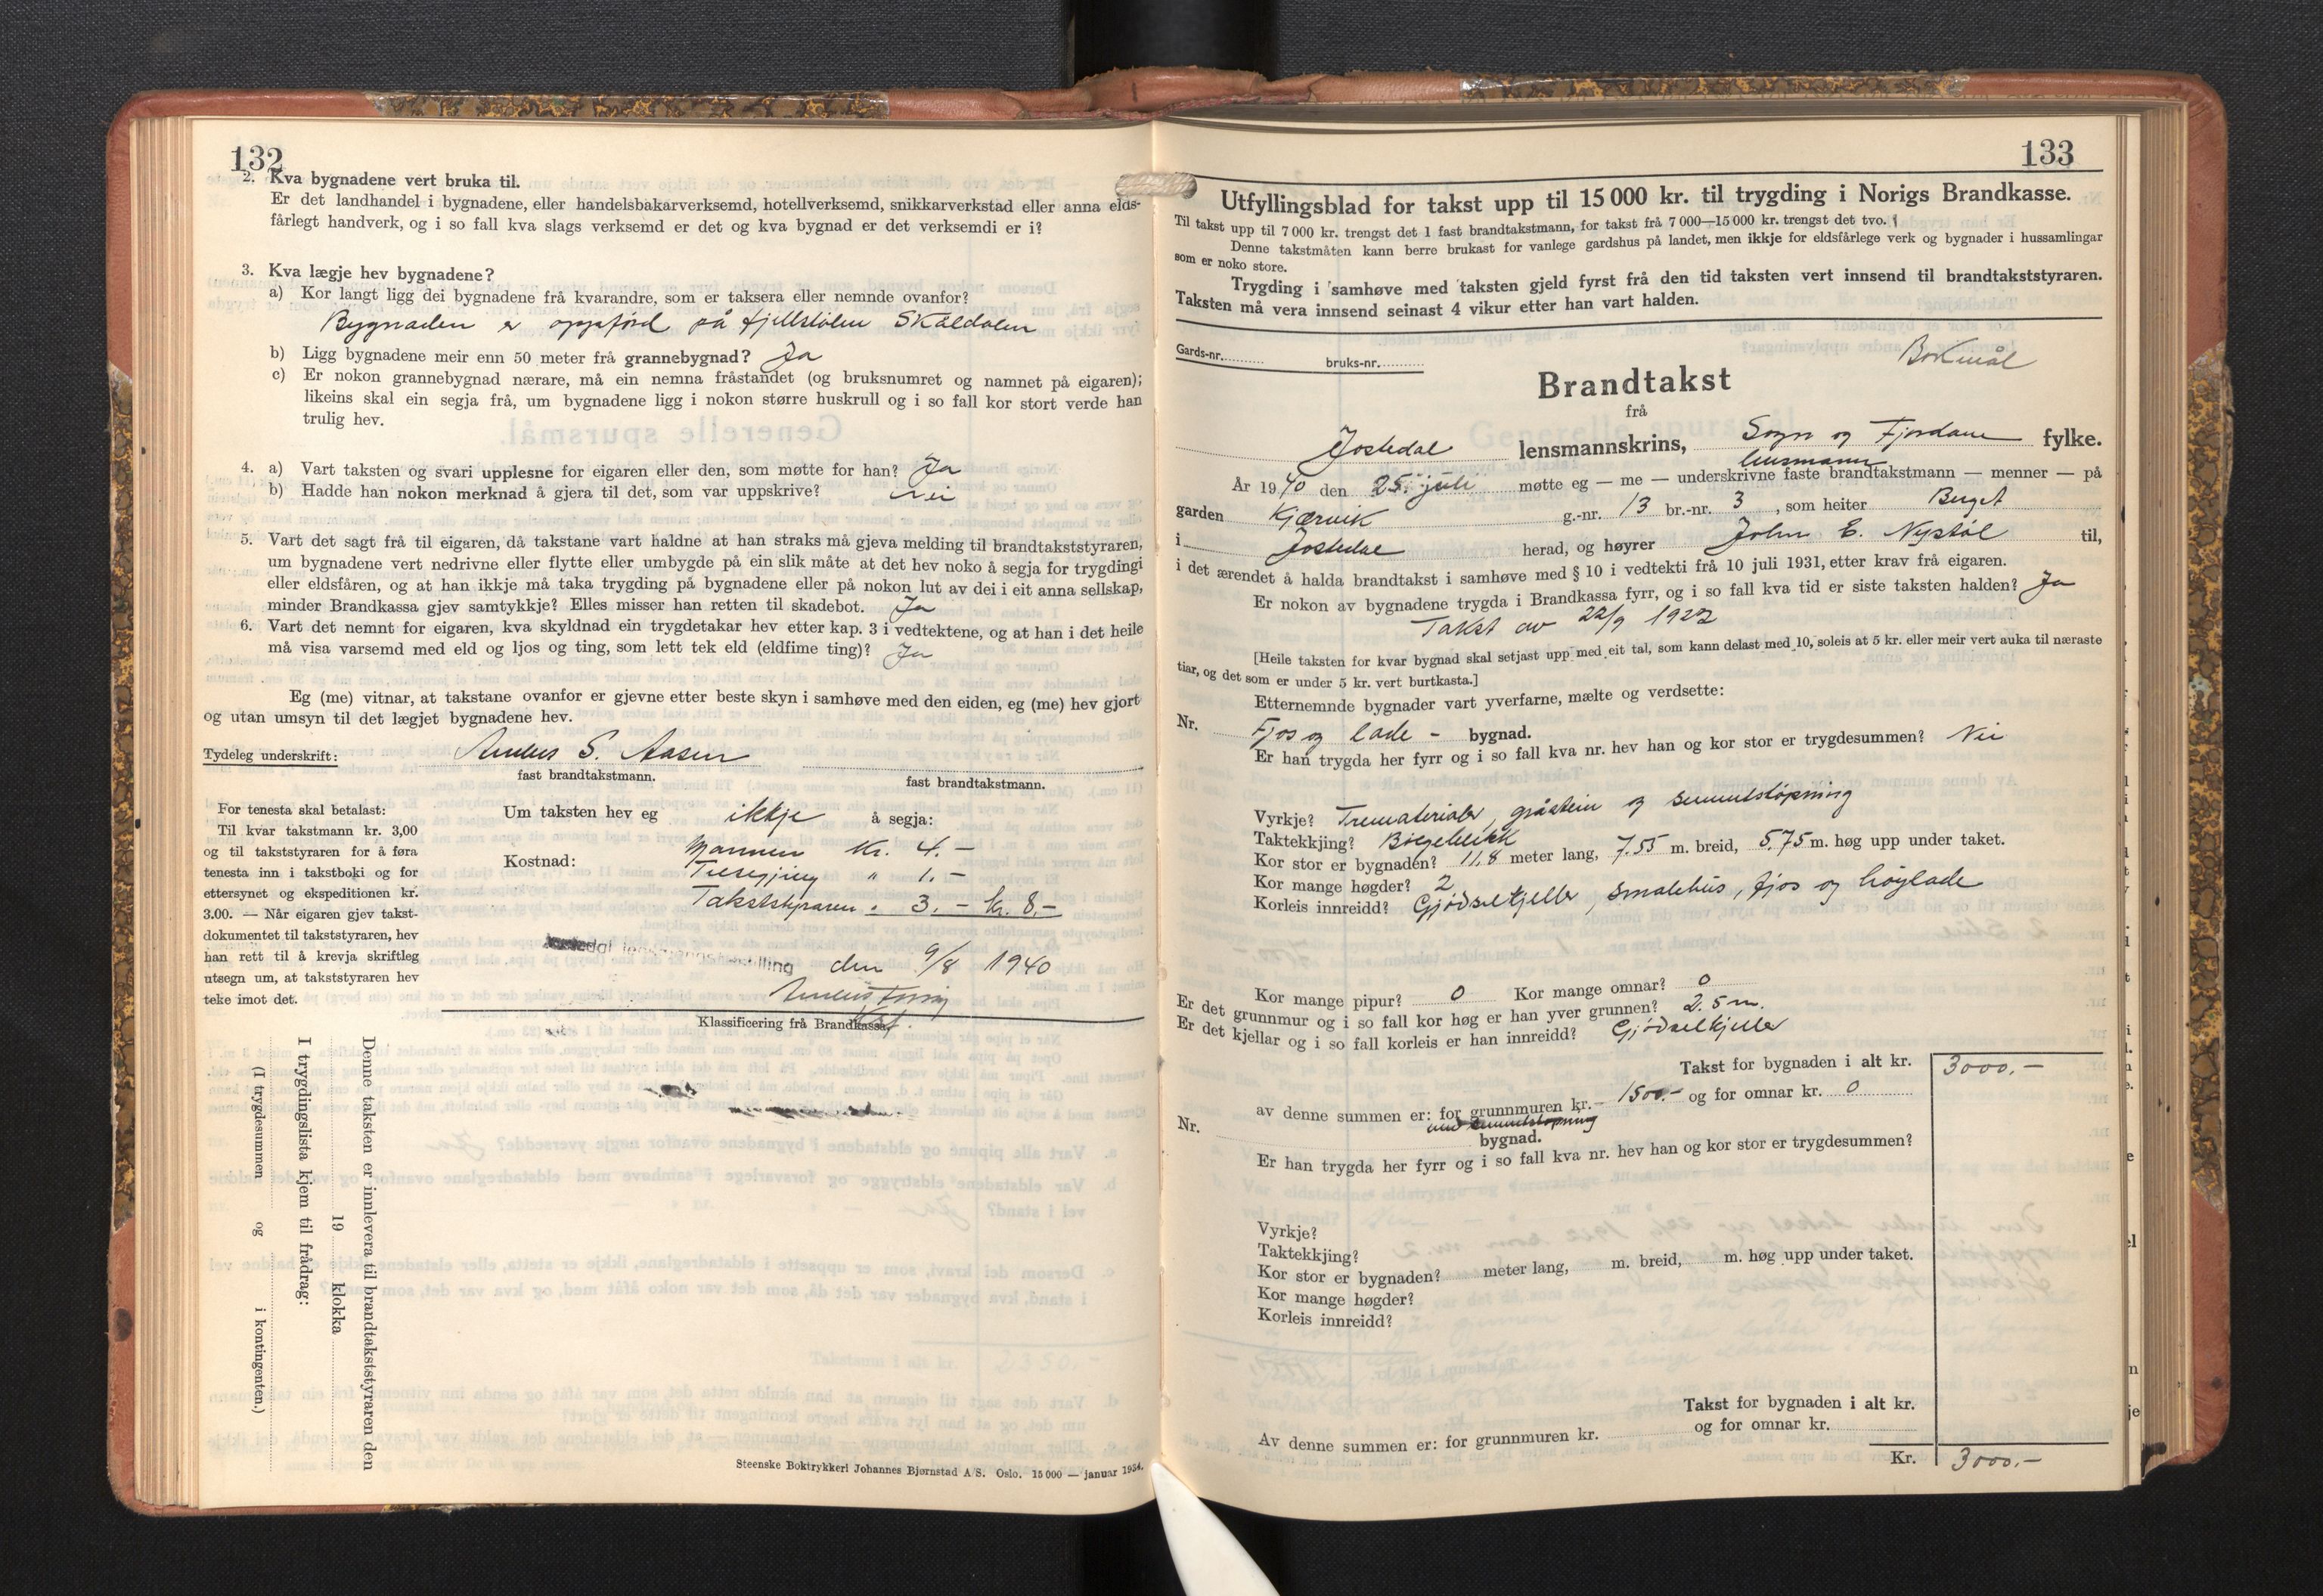 132
2. Kva bygnadene vert bruka til.
Er det landhandel i bygnadene, eller handelsbakarverksemd, hotellverksemd, snikkarverkstad eller anna elds-
fårlegt handverk, og i so fall kva slags verksemd er det og kva bygnad er det verksemdi er i?
3. Kva lægje hev bygnadene?
a) Kor langt ligg dei bygnadene frå kvarandre, som er taksera eller nemnde ovanfor?
Bygnaden er oppförd på fjellstölen Skåldalen
b) Ligg bygnadene meir enn 50 meter frå grannebygnad? Ja
c) Er nokon grannebygnad nærare, må ein nemna fråstandet (og bruksnumret og namnet på eigaren);
likeins skal ein segja frå, um bygnadene ligg i nokon større huskrull og i so fall kor stort verde han
trulig hev.
4. a) Vart taksten og svari upplesne for eigaren eller den, som møtte for han? Ja
b) Hadde han nokon merknad å gjera til det, som var uppskrive? Nei
5. Vart det sagt frå til eigaren, då takstane vart haldne at han straks må gjeva melding til brandtakststyraren,
um bygnadene vert nedrivne eller flytte eller umbygde på ein slik måte at det hev noko å segja for trygdingi
eller eldsfåren, og at han ikkje må taka trygding på bygnadene eller på nokon lut av dei i eit anna sellskap,
minder Brandkassa gjev samtykkje? Elles misser han retten til skadebot. Ja
6. Vart det nemnt for eigaren, kva skyldnad ein trygdetakar hev etter kap. 3 i vedtektene, og at han i det heile
må visa varsemd med eld og ljos og ting, som lett tek eld (eldfime ting)? Ja
Eg (me) vitnar, at takstane ovanfor er gjevne etter beste skyn i samhøve med den eiden, eg (me) hev gjort
og utan umsyn til det lægjet bygnadene hev.
Tydeleg underskrift: Anders S. Aasen
fast brandtakstmann. fast brandtakstmann.
For tenesta skal betalast:
Til kvar takstmann kr. 3,00
og til takststyraren for å føra
tenesta inn i takstboki og for
ettersynet og ekspeditionen kr.
3.00. — Når eigaren gjev takst-
dokumentet til takststyraren, hev
han rett til å krevja skriftleg
utsegn um, at takststyraren hev
teke imot det.
Um taksten hev eg ikkje å segja:
Kostnad: Mannen kr. 4.-
Tilsegjing " 1.-
Takststyraren " 3.- kr. 8.-
den 9/8 1940
Klassificering frå Brandkassa.
Denne taksten er innlevera til brandtakststyraren den
19 klokka
I trygdingslista kjem til frådrag:
(I trygdesummen og i kontingenten.)
Steenske Boktrykkeri Johannes Bjørnstad A/S. Oslo. 15 000 — januar 1934.
133
Utfyllingsblad for takst upp til 15 000 kr. til trygding i Norigs Brandkasse.
Til takst upp til 7 000 kr. trengst det 1 fast brandtakstmann, for takst frå 7 000—15 000 kr. trengst det tvo.
Denne takstmåten kann berre brukast for vanlege gardshus på landet, men ikkje for eldsfårlege verk og bygnader i hussamlingar
som er noko store.
Trygding i samhøve med taksten gjeld fyrst frå den tid taksten vert innsend til brandtakststyraren.
Taksten må vera innsend seinast 4 vikur etter han vart halden.
Gards-nr. bruks-nr.
Bokmål
Brandtakst
frå
Jostedal lensmannskrins, Sogn og Fjordane fylke.
lensmann
År 1940 den 25. juli møtte eg — me — underskrivne faste brandtakstmann — menner — på
garden Kjærvik g.-nr. 13 br.-nr. 3, som heiter Buget
i Jostedal herad, og høyrer John E. Nystöl til,
i det ærendet å halda brandtakst i samhøve med § 10 i vedtekti frå 10 juli 1931, etter krav frå eigaren.
Er nokon av bygnadene trygda i Brandkassa fyrr, og i so fall kva tid er siste taksten halden? Ja
Takst av 22/9 1922
[Heile taksten for kvar bygnad skal setjast upp med eit tal, som kann delast med 10, soleis at 5 kr. eller meir vert auka til næraste
tiar, og det som er under 5 kr. vert burtkasta.]
Etternemnde bygnader vart yverfarne, mælte og verdsette:
Nr. Fjos og lade - bygnad.
Er han trygda her fyrr og i so fall kva nr. hev han og kor stor er trygdesummen? Nei
Vyrkje? Trematerialer, gråstein og sementstöpning
Taktekkjing? Bölgeblekk
Kor stor er bygnaden? 11,8 meter lang, 7.55 m. breid, 5.75 m. høg upp under taket.
Kor mange høgder? 2
Korleis innreidd? Gjödselkjeller, smalehus, fjos og höylade
Kor mange pipur? 0 Kor mange omnar? 0
Er det grunnmur og i so fall kor høg er han yver grunnen? 2.5 m.
Er det kjellar og i so fall korleis er han innreidd? Gjödselkjeller
Takst for bygnaden i alt kr. 3000.-
av denne summen er: for grunnmuren kr. 1500.- og for omnar kr. 0
med sementstöpning
Nr. bygnad.
Er han trygda her fyrr og i so fall kva nr. hev han og kor stor er trygdesummen?
Vyrkje?
Taktekkjing?
Kor stor er bygnaden? meter lang, m. breid, m. høg upp under taket.
Kor mange høgder?
Korleis innreidd?
Takst for bygnaden i alt kr.
Av denne summen er: for grunnmuren kr. og for omnar kr.
Kr. 3000.-